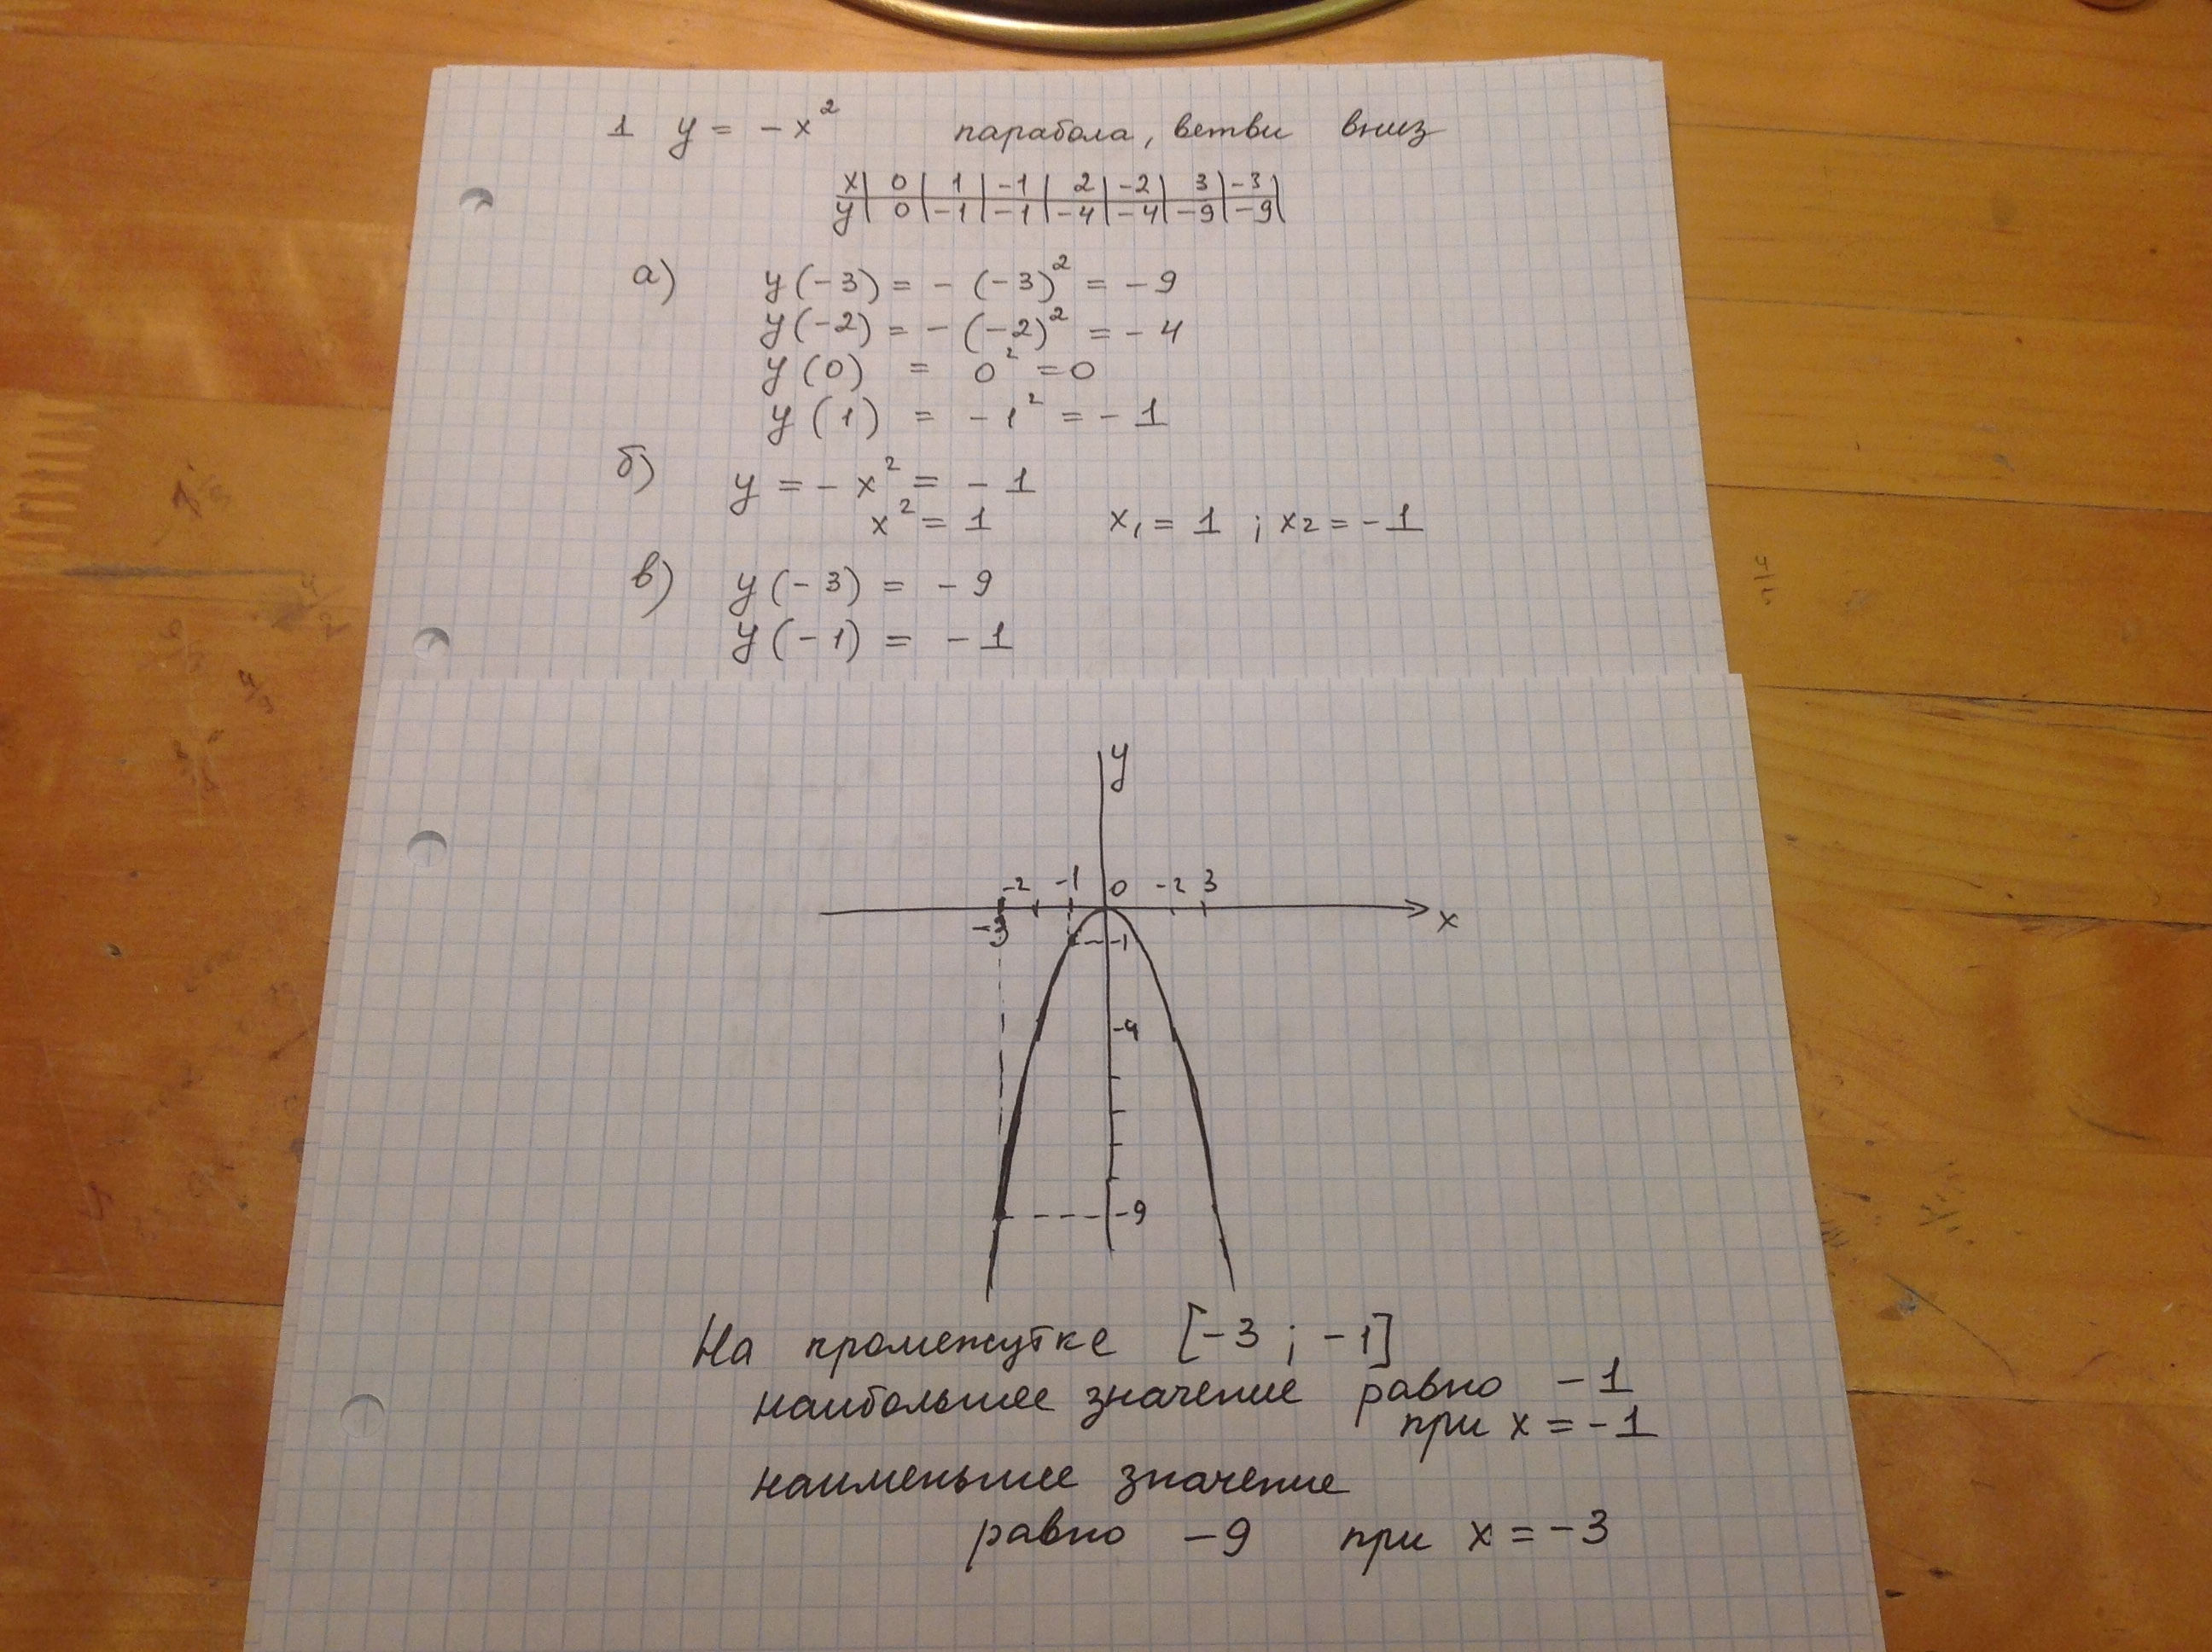 1 y = -x² парабола, ветви вниз
x | 0 | 1 | -1 | 2 | -2 | 3 | -3 |
y | 0 | -1 | -1 | -4 | -4 | -9 | -9 |
а) y(-3) = -(-3)² = -9
y(-2) = -(-2)² = -4
y(0) = 0² = 0
y(1) = -1² = -1
б) y = -x² = -1
x² = 1 x₁ = 1 ; x₂ = -1
в) y(-3) = -9
y(-1) = -1
y
-2 -1 0 -2 3
-3 x
-1
-4
-9
На промежутке [-3 ; -1]
наибольшее значение равно -1
при x = -1
наименьшее значение
равно -9 при x = -3